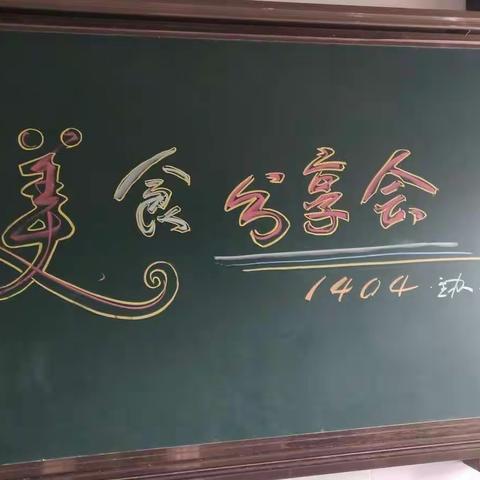 美食分享会
1404